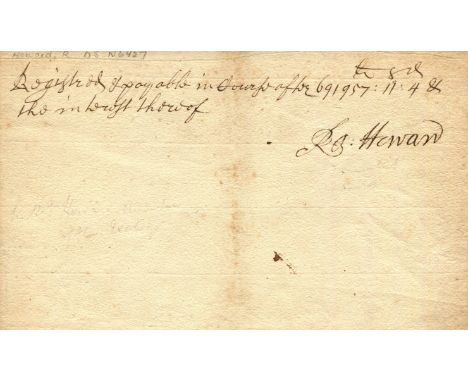 Howard, R DS N6427
li s d
Registred & payable in Course after 691957: 11: 4 &
the interest thereof
Ro: Howard